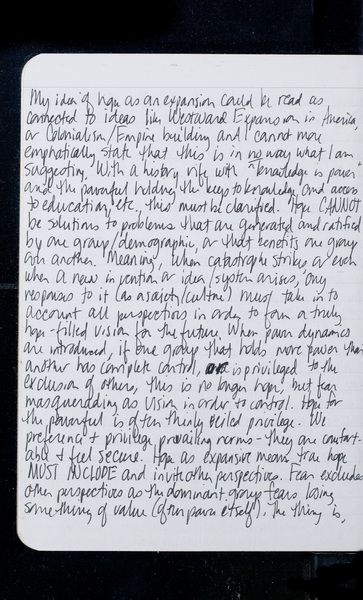 My idea of hope as an expansion could be read as
connected to ideas like Westward Expansion in America
or Colonialism/Empire building and I cannot more
emphatically state that this is in no way what I am
suggesting. With a history rife with "knowledge is power"
and the powerful holding the keys to knowledge, and access
to education, etc., this must be clarified. Hope CANNOT
be solutions to problems that are generated and ratified
by one group/demographic, or that benefits one group
over another. Meaning, when catastrophe strikes, or even
when a new invention or idea/system arises, any
responses to it (as a society/culture) must take into
account all perspectives in order to form a truly
hope-filled vision for the future. When power dynamics
are introduced, if one group that holds more power than
another has complete control, is privileged to the
exclusion of others, this is no longer hope, but fear
masquerading as vision in order to control. Hope for
the powerful is often thinly veiled privilege. We
preference + privilege prevailing norms - they are comfort-
able + feel secure. Hope as expansive means true hope
MUST INCLUDE and invite other perspectives. Fear excludes
other perspectives as the dominant group fears losing
something of value (often power itself). The thing is,